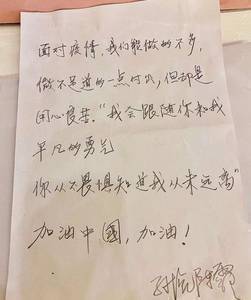 面对疫情,我们能做的不多,
微不足道的一点付出,但却是
用心良苦.“我会跟随你和我
平凡的勇气
你从不畏惧知道我从未远离”
加油中國,加油!